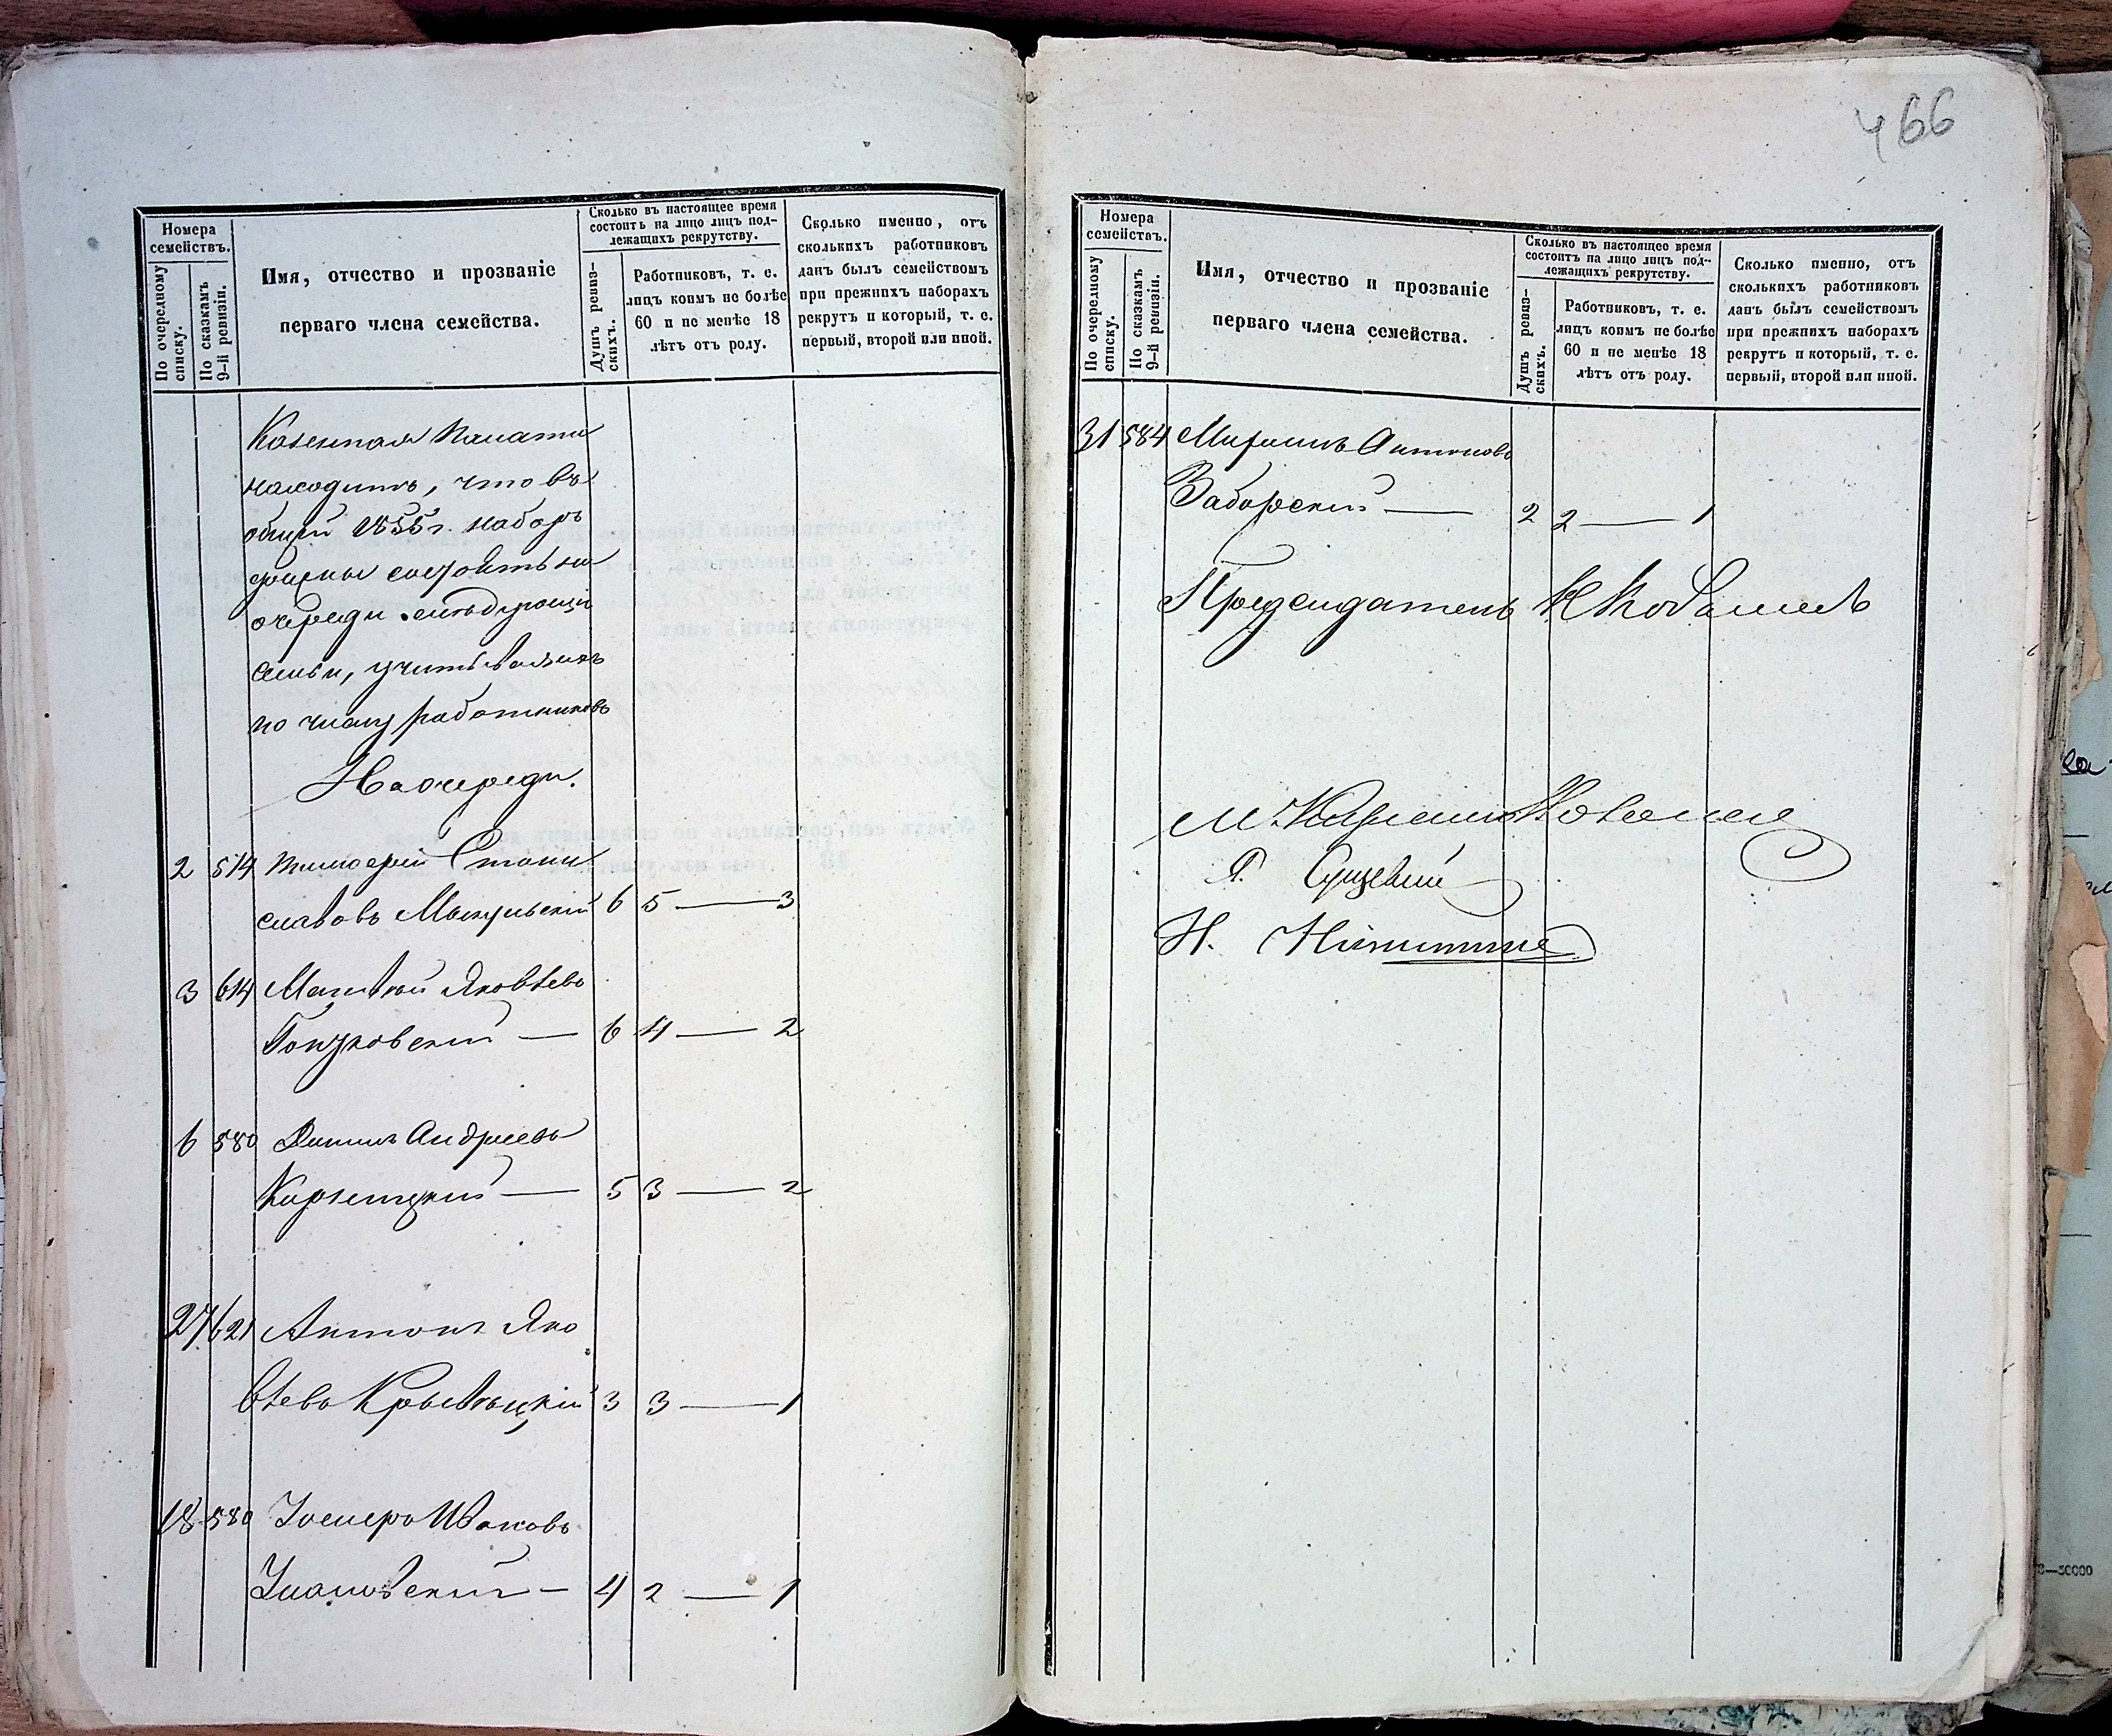 466
Номера семействъ.
По очередному списку.
По сказкамъ 9-й ревизіи.
Имя, отчество и прозваніе
перваго члена семейства.
Сколько въ настоящее время
состоитъ на лицо лицъ под-
лежащихъ рекрутству.
Душъ ревиз-
скихъ.
Работниковъ, т. е.
лицъ коимъ не болѣе
60 и не менѣе 18
лѣтъ отъ роду.
Сколько именно, отъ
сколькихъ работниковъ
данъ былъ семействомъ
при прежнихъ наборахъ
рекрутъ и который, т. е.
первый, второй или иной.
Казенная Палата
находитъ, что въ
общій 1855 г. наборъ
должны состоять на
очереди слѣдующія
семьи, учитываясь
по числу работниковъ
На очереди.
2 514 Тимофей Стани
славовъ 6 5 — 3
3 614 Матвѣй Яковлевъ
6 4 — 2
6 580 Андреевъ
5 3 — 2
27 621 Антонъ Яко
влевъ 3 3 — 1
18 580 Ивановъ
4 2 — 1
Номера
семействъ.
По очередному
списку.
По сказкамъ
9-й ревизіи.
Имя, отчество и прозваніе
перваго члена семейства.
Сколько въ настоящее время
состоитъ на лицо лицъ под-
лежащихъ рекрутству.
Душъ ревиз-
скихъ.
Работниковъ, т. е.
лицъ коимъ не болѣе
60 и не менѣе 18
лѣтъ отъ роду.
Сколько именно, отъ
сколькихъ работниковъ
данъ былъ семействомъ
при прежнихъ наборахъ
рекрутъ и который, т. е.
первый, второй или иной.
31 584 Антоновъ
Заборскій — 2 2 — 1
Предсѣдатель
Н. Никитинъ